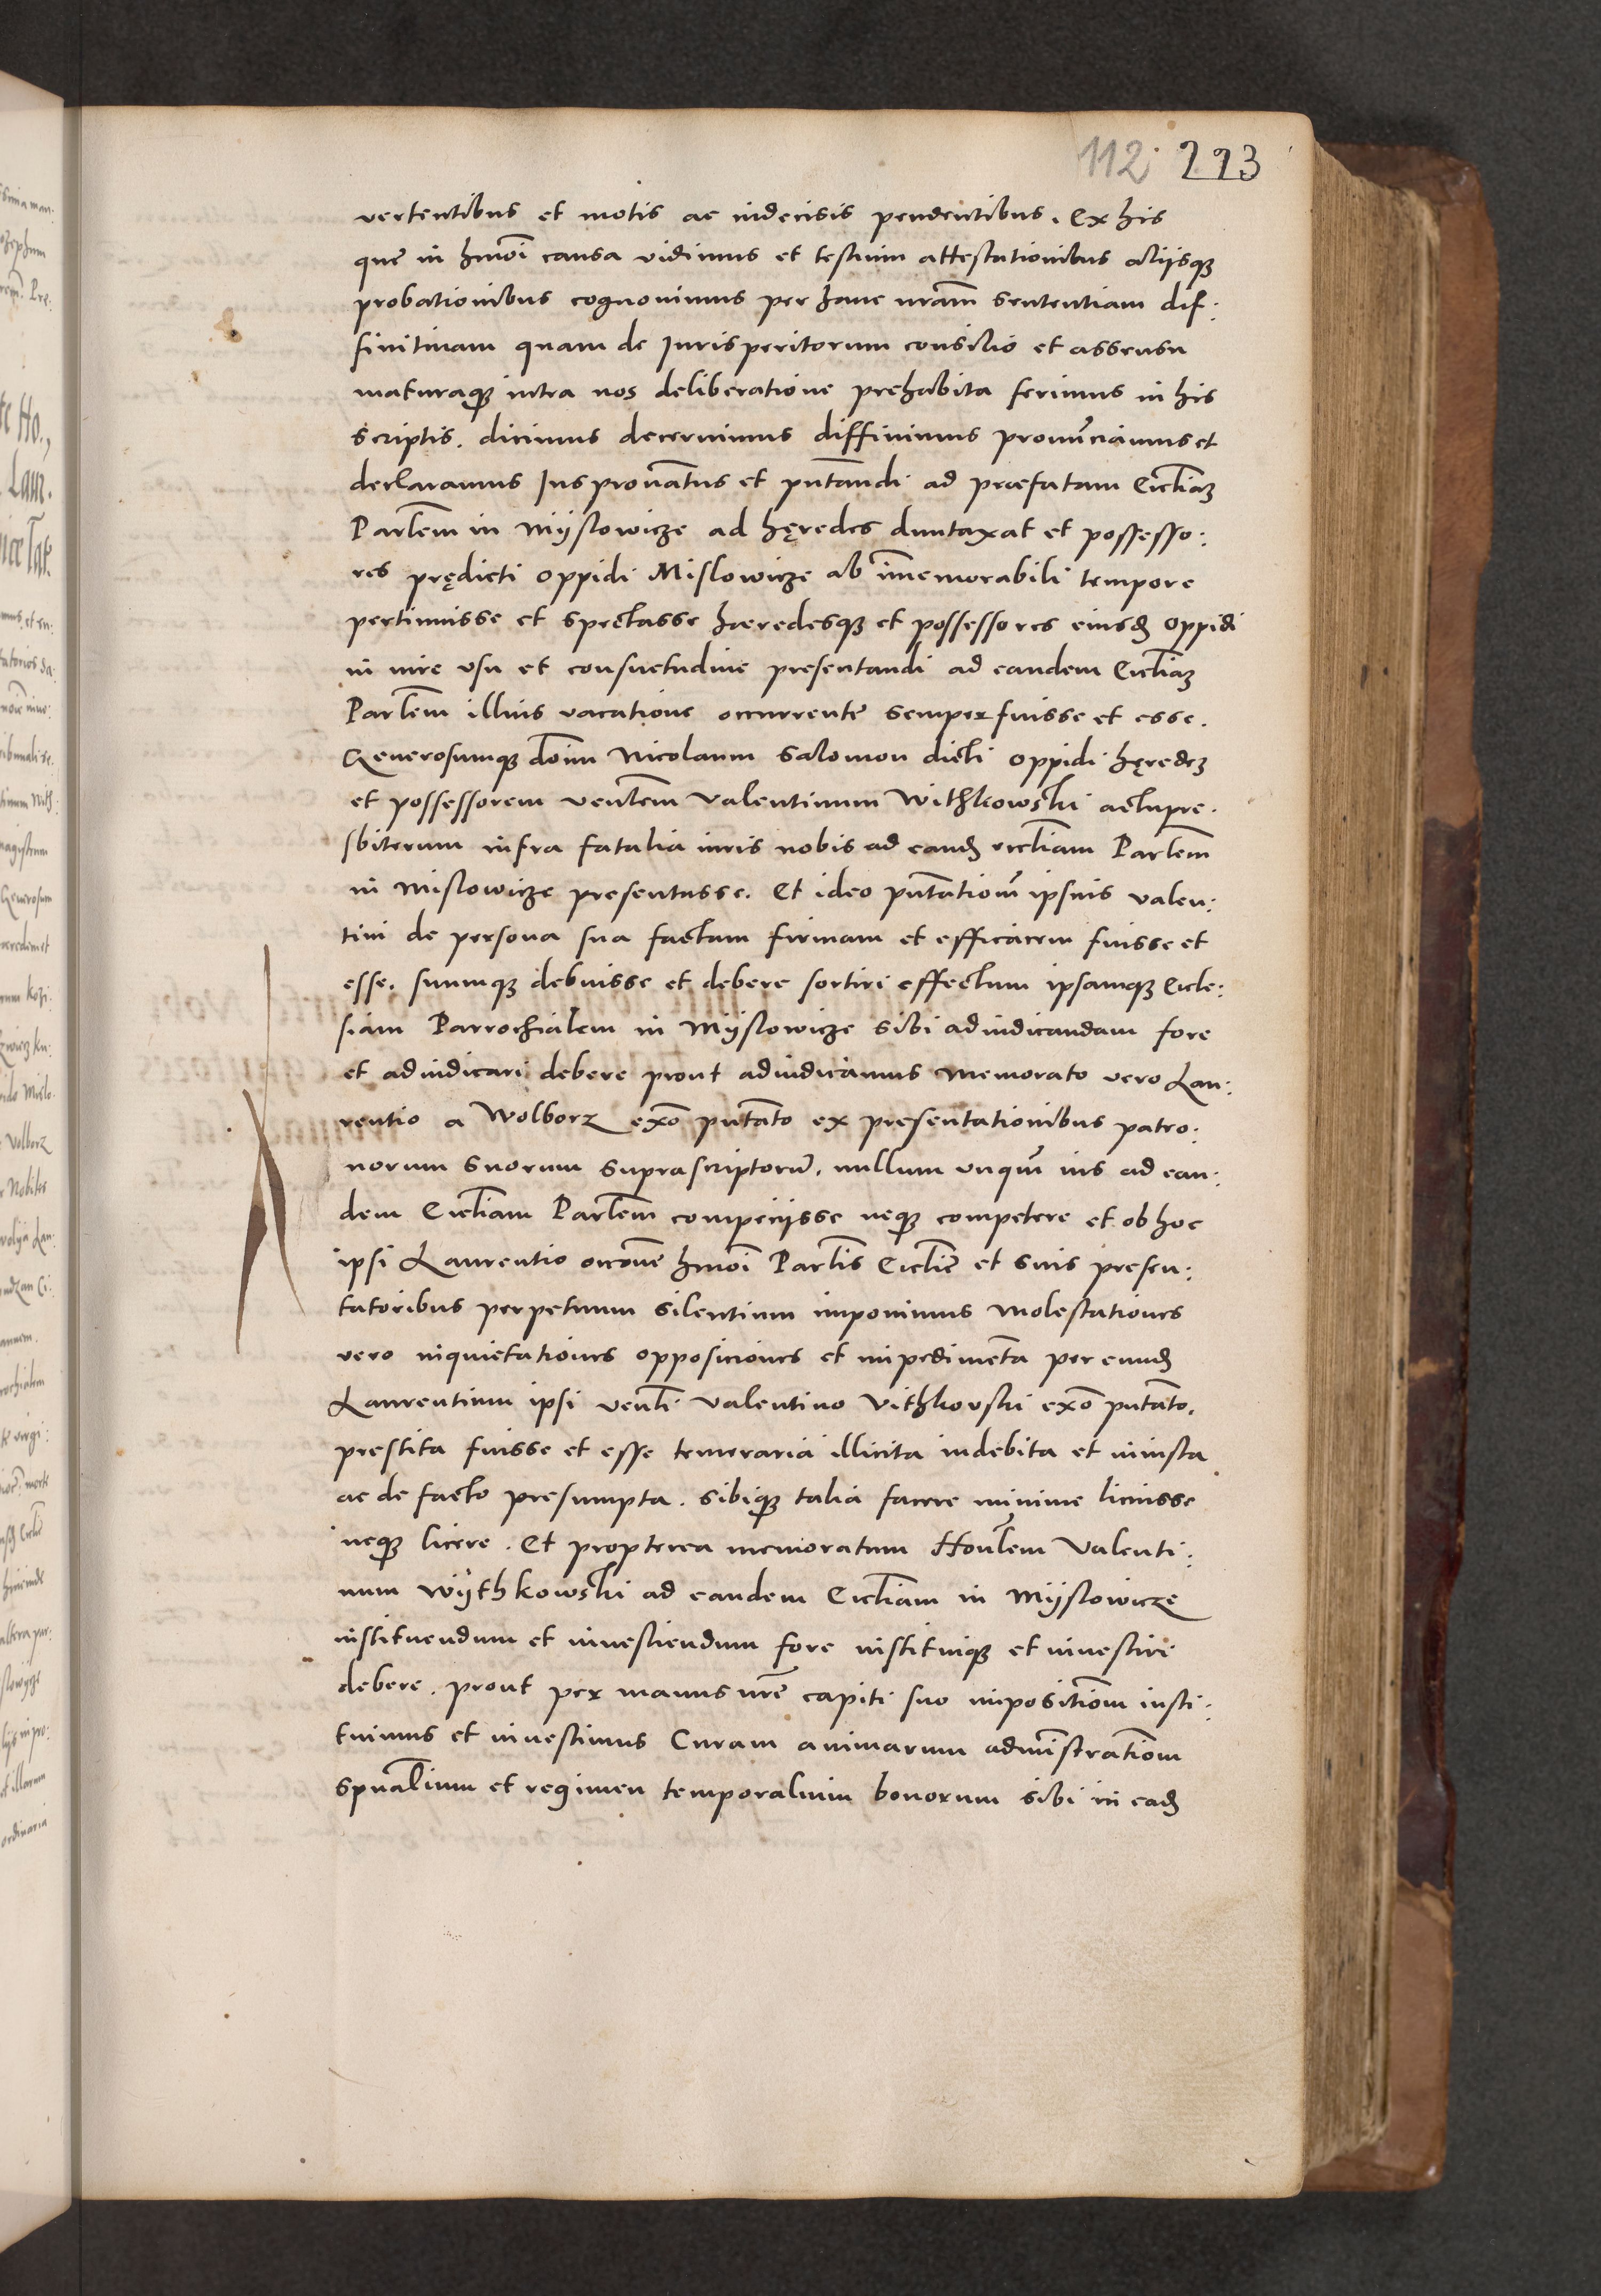 112. 223
vertentibus et motis ac indecisis pendentibus. Ex his
que in hmōi causa vidimus et testium attestationibus alijsqꝫ
probationibus cognovimus per hanc nrām sententiam dif:
finitivam quam de Jurisperitorum consilio et assensu
maturaqꝫ intra nos deliberatione prehabita ferimus in his
scriptis. dicimus decernimus diffinimus pronūnciamus et
declaramus Jus pronāatus et pn̄tandi ad præfatam Ecclīaꝫ
Parlēm in Mijslowicze ad hęredes duntaxat et possesso:
res prędicti oppidi Mislowicze ab īmemorabili tempore
pertinuisse et spectasse hæredesqꝫ et possessores eiusdꝫ oppidi
in iure usu et consuetudine presentandi ad eandem Ecclīaꝫ
Parlēm illius vacatione occurrente semper fuisse et esse.
Generosumqꝫ dōim Nicolaum Salomon dicti oppidi hęredeꝫ
et possessorem venlēm Valentinum Withkowski actu pre:
sbiterum infra fatalia iuris nobis ad eandꝫ ecclīam Parlēm
in Mislowicze presentasse. Et ideo pn̄tationēm ipsius Valen:
tini de persona sua factam firmam et efficacem fuisse et
esse. suumqꝫ debuisse et debere sortiri effectum ipsamqꝫ Eccle:
siam Parrochialem in Mijslowicze sibi adiudicandam fore
et adiudicari debere prout adiudicamus Memorato vero Lau:
rentio a Wolborz exō pn̄tāto ex presentationibus patro:
norum suorum suprascriptorū. nullum unqūm ius ad ean:
dem Ecclīam Parlēm competijsse neqꝫ competere et ob hoc
ipsi Laurentio occōne hmōi Parlīs Ecclīe et suis presen:
tatoribus perpetuum silentium imponimus Molestationes
vero inquietationes oppositiones et impedimēta per eundꝫ
Laurentium ipsi venlī Valentino Vithkovski exō pn̄tāto.
prestita fuisse et esse temeraria illicita indebita et iniusta
ac de facto presumpta. sibiqꝫ talia facere minime licuisse
neqꝫ licere. Et propterea memoratum Honlēm Valenti:
num Wÿthkowski ad eandem Ecclīam in Mijslowicze
instituendum et investiendum fore instituiqꝫ et investiri
debere. prout per manus nrē capiti suo impositiōm insti:
tuimus et investimus Curam animarum admīstratiōm
spūalium et regimen temporalium bonorum sibi in eadꝫ